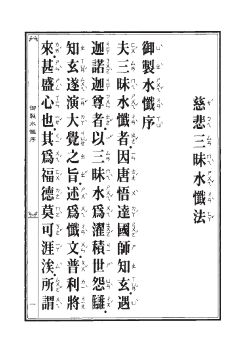 慈悲三昧水懺法
御製水懺序
夫三昧水懺者因唐悟達國師知玄遇
迦諾迦尊者以三昧水為濯積世怨讎
知玄遂演大覺之旨述為懺文普利將
來甚盛心也其為福德莫可涯涘所謂
御製水懺序
一